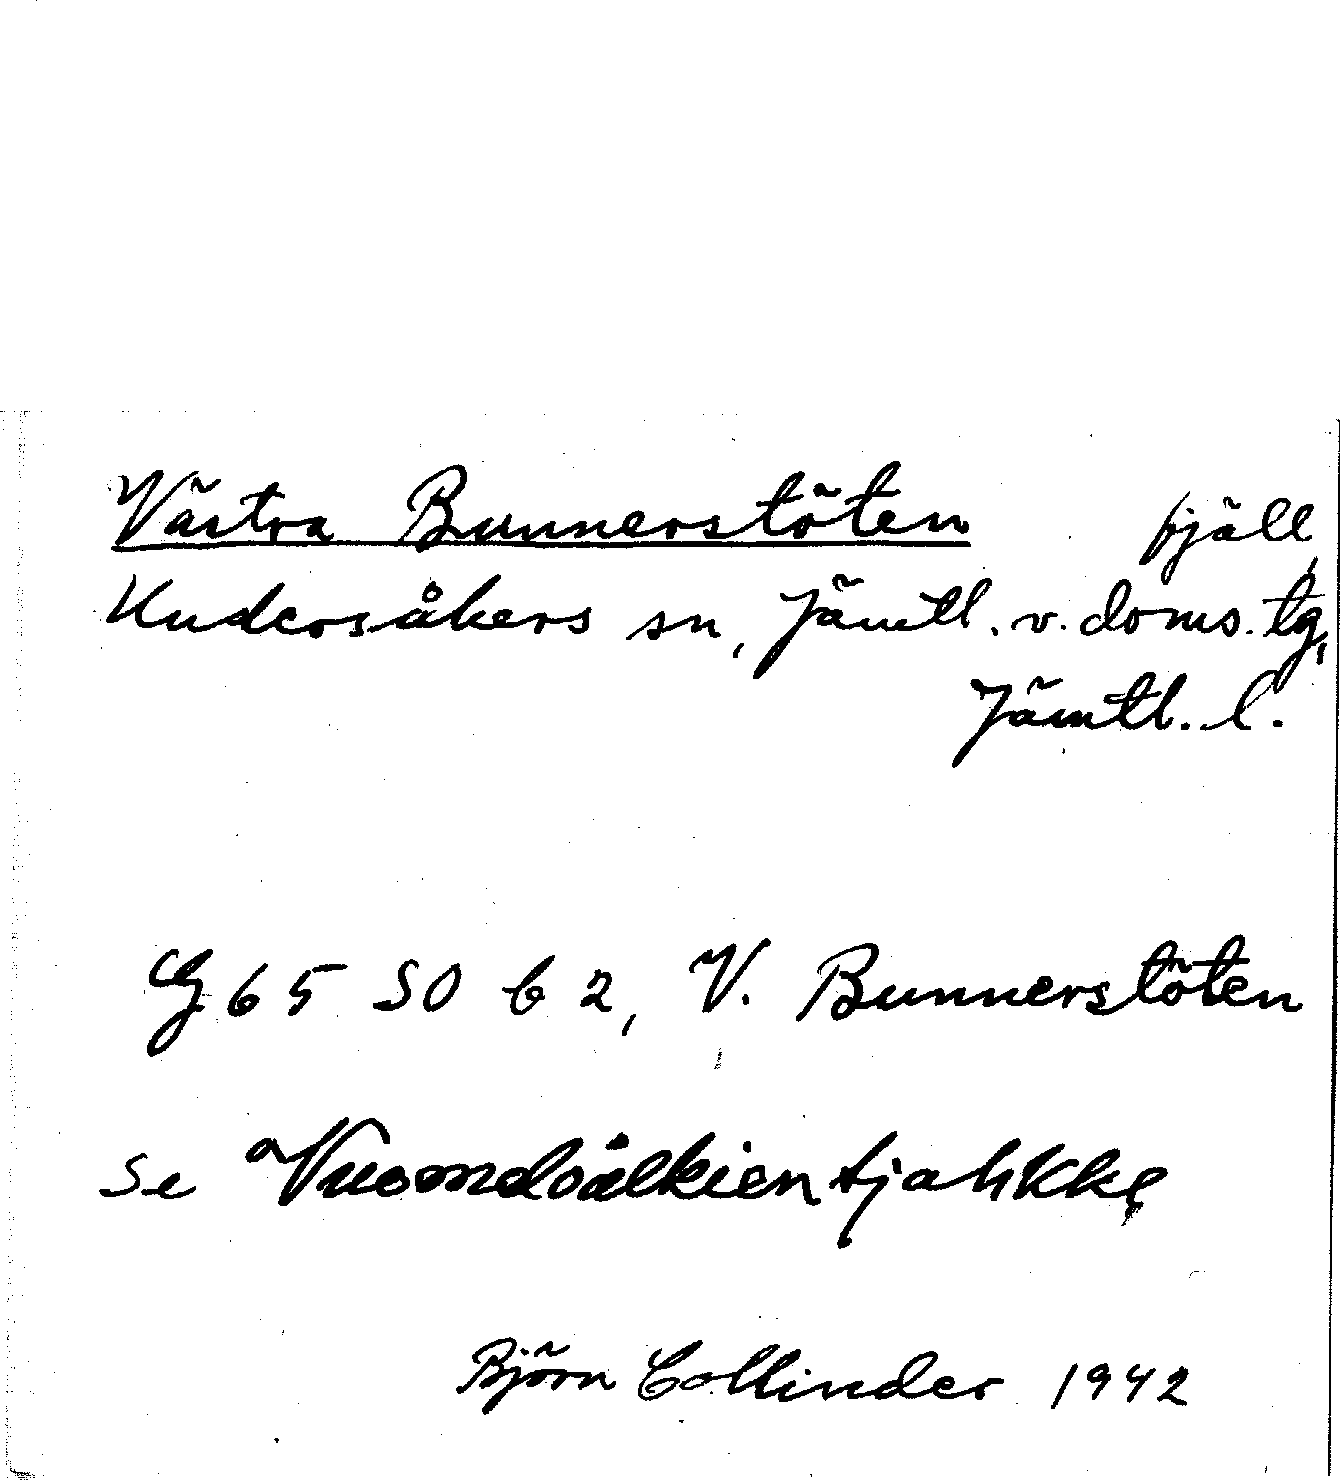 Västra Bunnerstöten fjäll,
Undersåkers sn, Jämtl. v. doms. tg,
Jämtl. l.
G 65 SO b 2, V. Bunnerstöten
se
Björn Collinder 1942